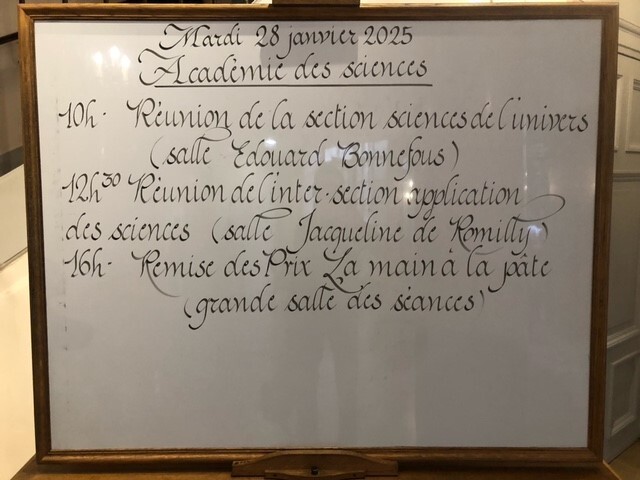 Mardi 28 janvier 2025
Académie des sciences
10h. Réunion de la section sciences de l'univers
(salle Edouard Bonnefous)
12h30 Réunion de l'inter-section application
des sciences (salle Jacqueline de Romilly)
16h. Remise des Prix La main à la pâte
(grande salle des séances)